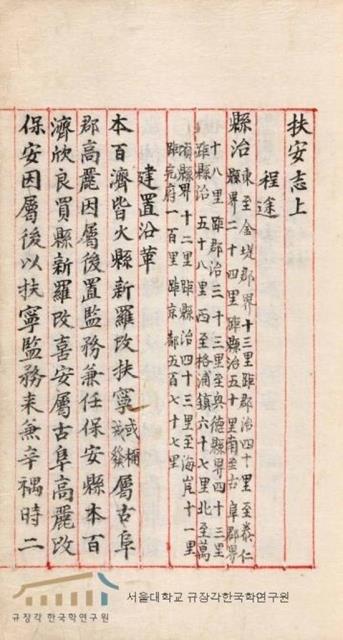 扶安志上
程途
縣治東至金堤郡界十三里距郡治四十里至泰仁
縣界二十四里距縣治五十里南至古阜郡界
十八里距郡治三十三里至興德縣界四十三里
距縣治五十八里西至格浦鎮六十七里北至萬
頃縣界十二里距縣治四十三里至海岸十一里
距完府一百里距京都五百七十七里
建置沿革
本百濟皆火縣新羅改扶寧或稱戒發屬古阜
郡高麗因屬後置監務兼任保安縣本百
濟欣良買縣新羅改喜安屬古阜高麗改
保安因屬後以扶寧監務来兼辛禑時二
규장각한국학연구원
서울대학교 규장각한국학연구원